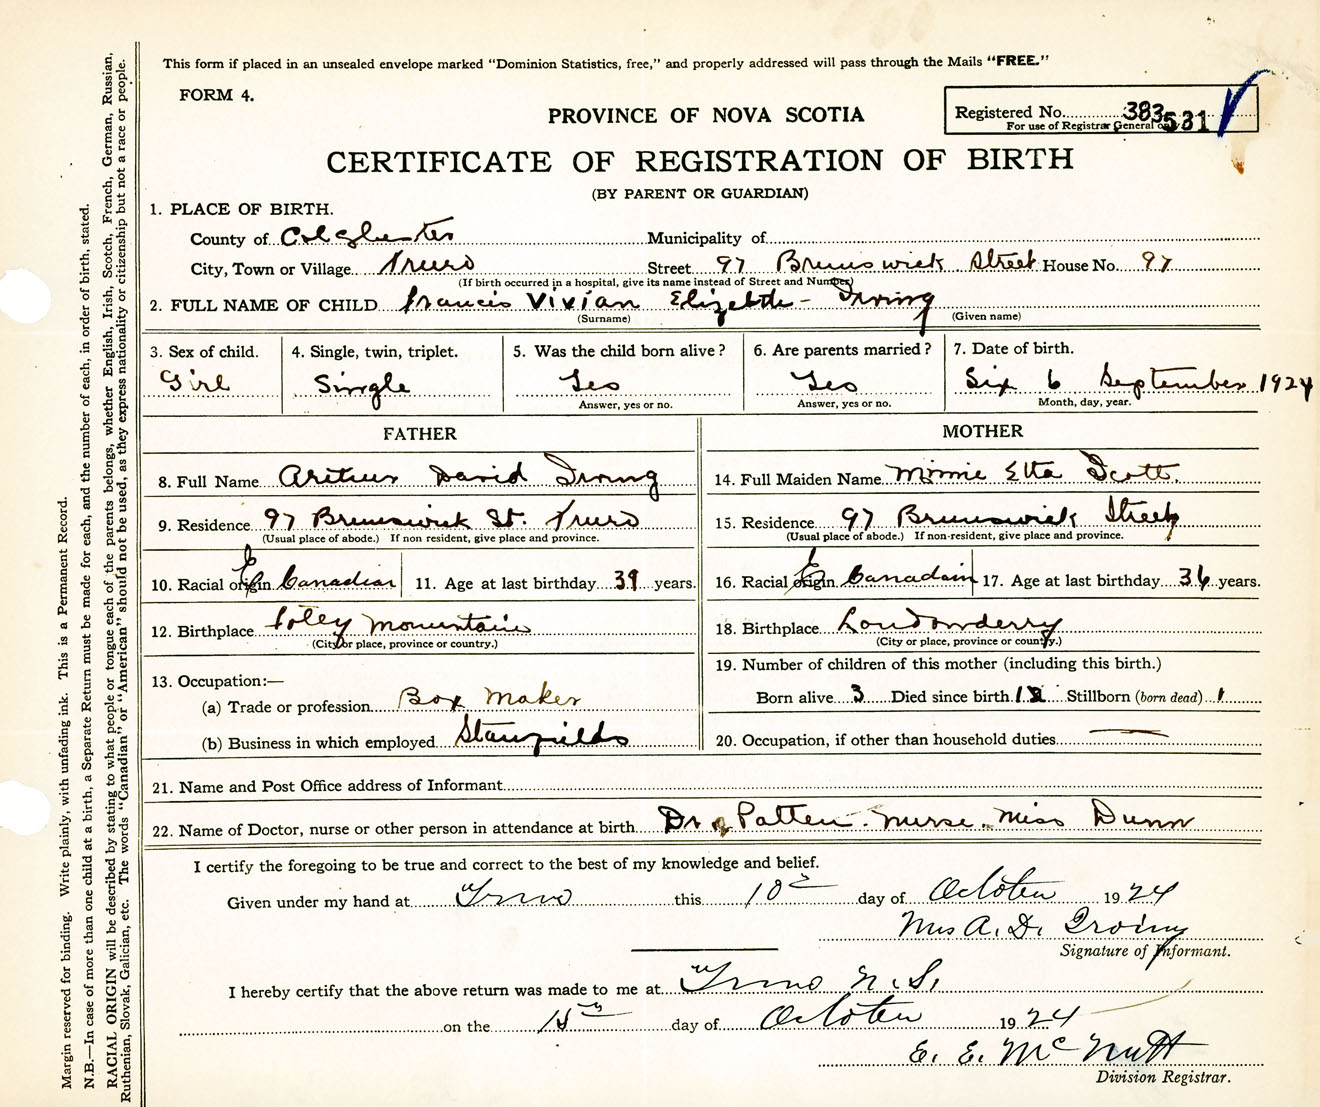 This form if placed in an unsealed envelope marked "Dominion Statistics, free," and properly addressed will pass through the Mails "FREE."
FORM 4.
PROVINCE OF NOVA SCOTIA
Registered No. 383 531
For use of Registrar General only
CERTIFICATE OF REGISTRATION OF BIRTH
(BY PARENT OR GUARDIAN)
1. PLACE OF BIRTH.
County of Colchester Municipality of
City, Town or Village Truro Street 97 Brunswick Street House No. 97
(If birth occurred in a hospital, give its name instead of Street and Number)
2. FULL NAME OF CHILD Francis Vivian Elizebth - Irving
(Surname) (Given name)
3. Sex of child. 4. Single, twin, triplet. 5. Was the child born alive? 6. Are parents married? 7. Date of birth.
Girl Single Yes Yes Six 6 September 1924
Answer, yes or no. Answer, yes or no. Month, day, year.
FATHER
8. Full Name Arthur David Irving
9. Residence 97 Brunswick St. Truro
(Usual place of abode.) If non resident, give place and province.
10. Racial origin E Canadian 11. Age at last birthday 39 years.
12. Birthplace Foley Mountain
(City or place, province or country.)
13. Occupation:—
(a) Trade or profession Box Maker
(b) Business in which employed Stanfields
MOTHER
14. Full Maiden Name Minnie Etta Scott.
15. Residence 97 Brunswick Street
(Usual place of abode.) If non-resident, give place and province.
16. Racial origin E Canadain 17. Age at last birthday 36 years.
18. Birthplace Londonderry
(City or place, province or country.)
19. Number of children of this mother (including this birth.)
Born alive 3 Died since birth 1 Stillborn (born dead) 1
20. Occupation, if other than household duties
21. Name and Post Office address of Informant
22. Name of Doctor, nurse or other person in attendance at birth Dr Patten. Nurse Miss Dunn
I certify the foregoing to be true and correct to the best of my knowledge and belief.
Given under my hand at Truro this 10th day of October 1924
Mrs A. D. Irving
Signature of Informant.
I hereby certify that the above return was made to me at Truro N.S.
on the 15th day of October 1924
E. E. McNutt
Division Registrar.
Margin reserved for binding. Write plainly, with unfading ink. This is a Permanent Record.
N.B.—In case of more than one child at a birth, a Separate Return must be made for each, and the number of each, in order of birth, stated.
RACIAL ORIGIN will be described by stating to what people or tongue each of the parents belongs, whether English, Irish, Scotch, French, German, Russian,
Ruthenian, Slovak, Galician, etc. The words "Canadian" or "American" should not be used, as they express nationality or citizenship but not a race or people.